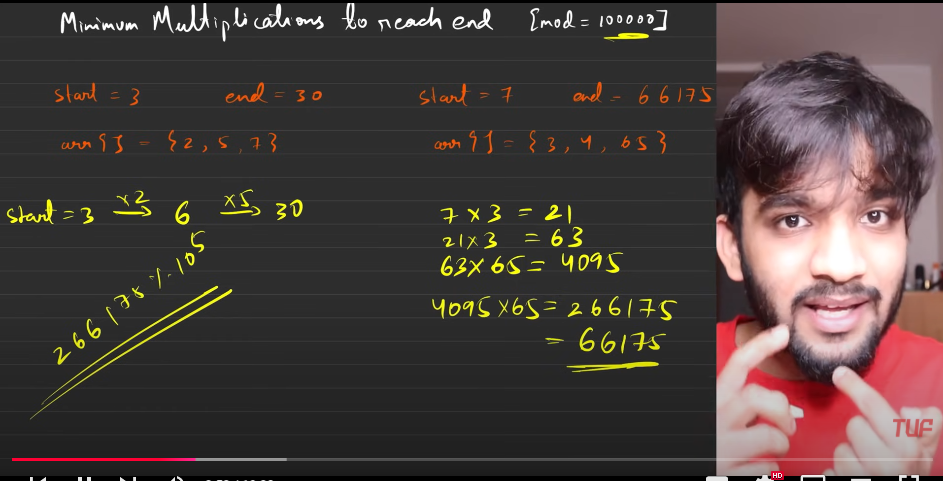 Minimum Multiplications to reach end [mod = 100000]
start = 3 end = 30
arr[] = {2, 5, 7}
start = 3 ×2→ 6 ×5→ 30
266175 % 10^5
start = 7 end = 66175
arr[] = {3, 4, 65}
7 × 3 = 21
21 × 3 = 63
63 × 65 = 4095
4095 × 65 = 266175
= 66175
TUF
HD